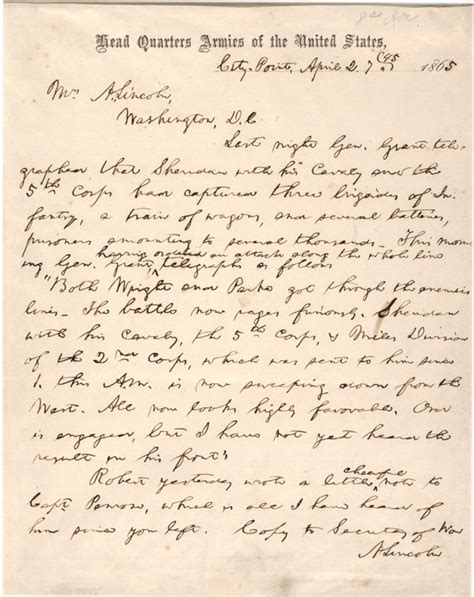 8 00 A.M.
Head Quarters Armies of the United States,
City-Point, April 2. 7/45 1865
Mrs A. Lincoln,
Washington, D.C.
Last night Gen. Grant tele-
graphed that Sheridan with his Cavalry and the
5th Corps had captured three brigades of In-
fantry, a train of wagons, and several batteries,
prisoners amounting to several thousands. This morn-
having ordered an attack along the whole line
ing Gen. Grant, telegraphs as follows
"Both Wright and Parke got through the enemies
lines. The battle now rages furiously. Sheridan
with his Cavalry, the 5th Corps, & Miles Division
of the 2nd Corps, which was sent to him since
1. this A.M. is now sweeping down from the
West. All now looks highly favorable. Ord
is engaged, but I have not yet heard the
result in his front"
cheerful
Robert yesterday wrote a little note to
Capt Penrose, which is all I have heard of
him since you left. Copy to Secretary of War
A. Lincoln